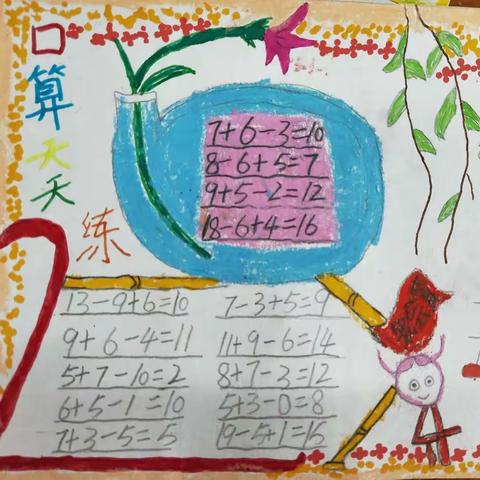 口算天天练
7+6-3=10
8-6+5=7
9+5-2=12
18-6+4=16
13-9+6=10
9+6-4=11
5+7-10=2
6+5-1=10
7+3-5=5
7-3+5=9
11+9-6=14
8+7-3=12
5+3-0=8
19-5+1=15